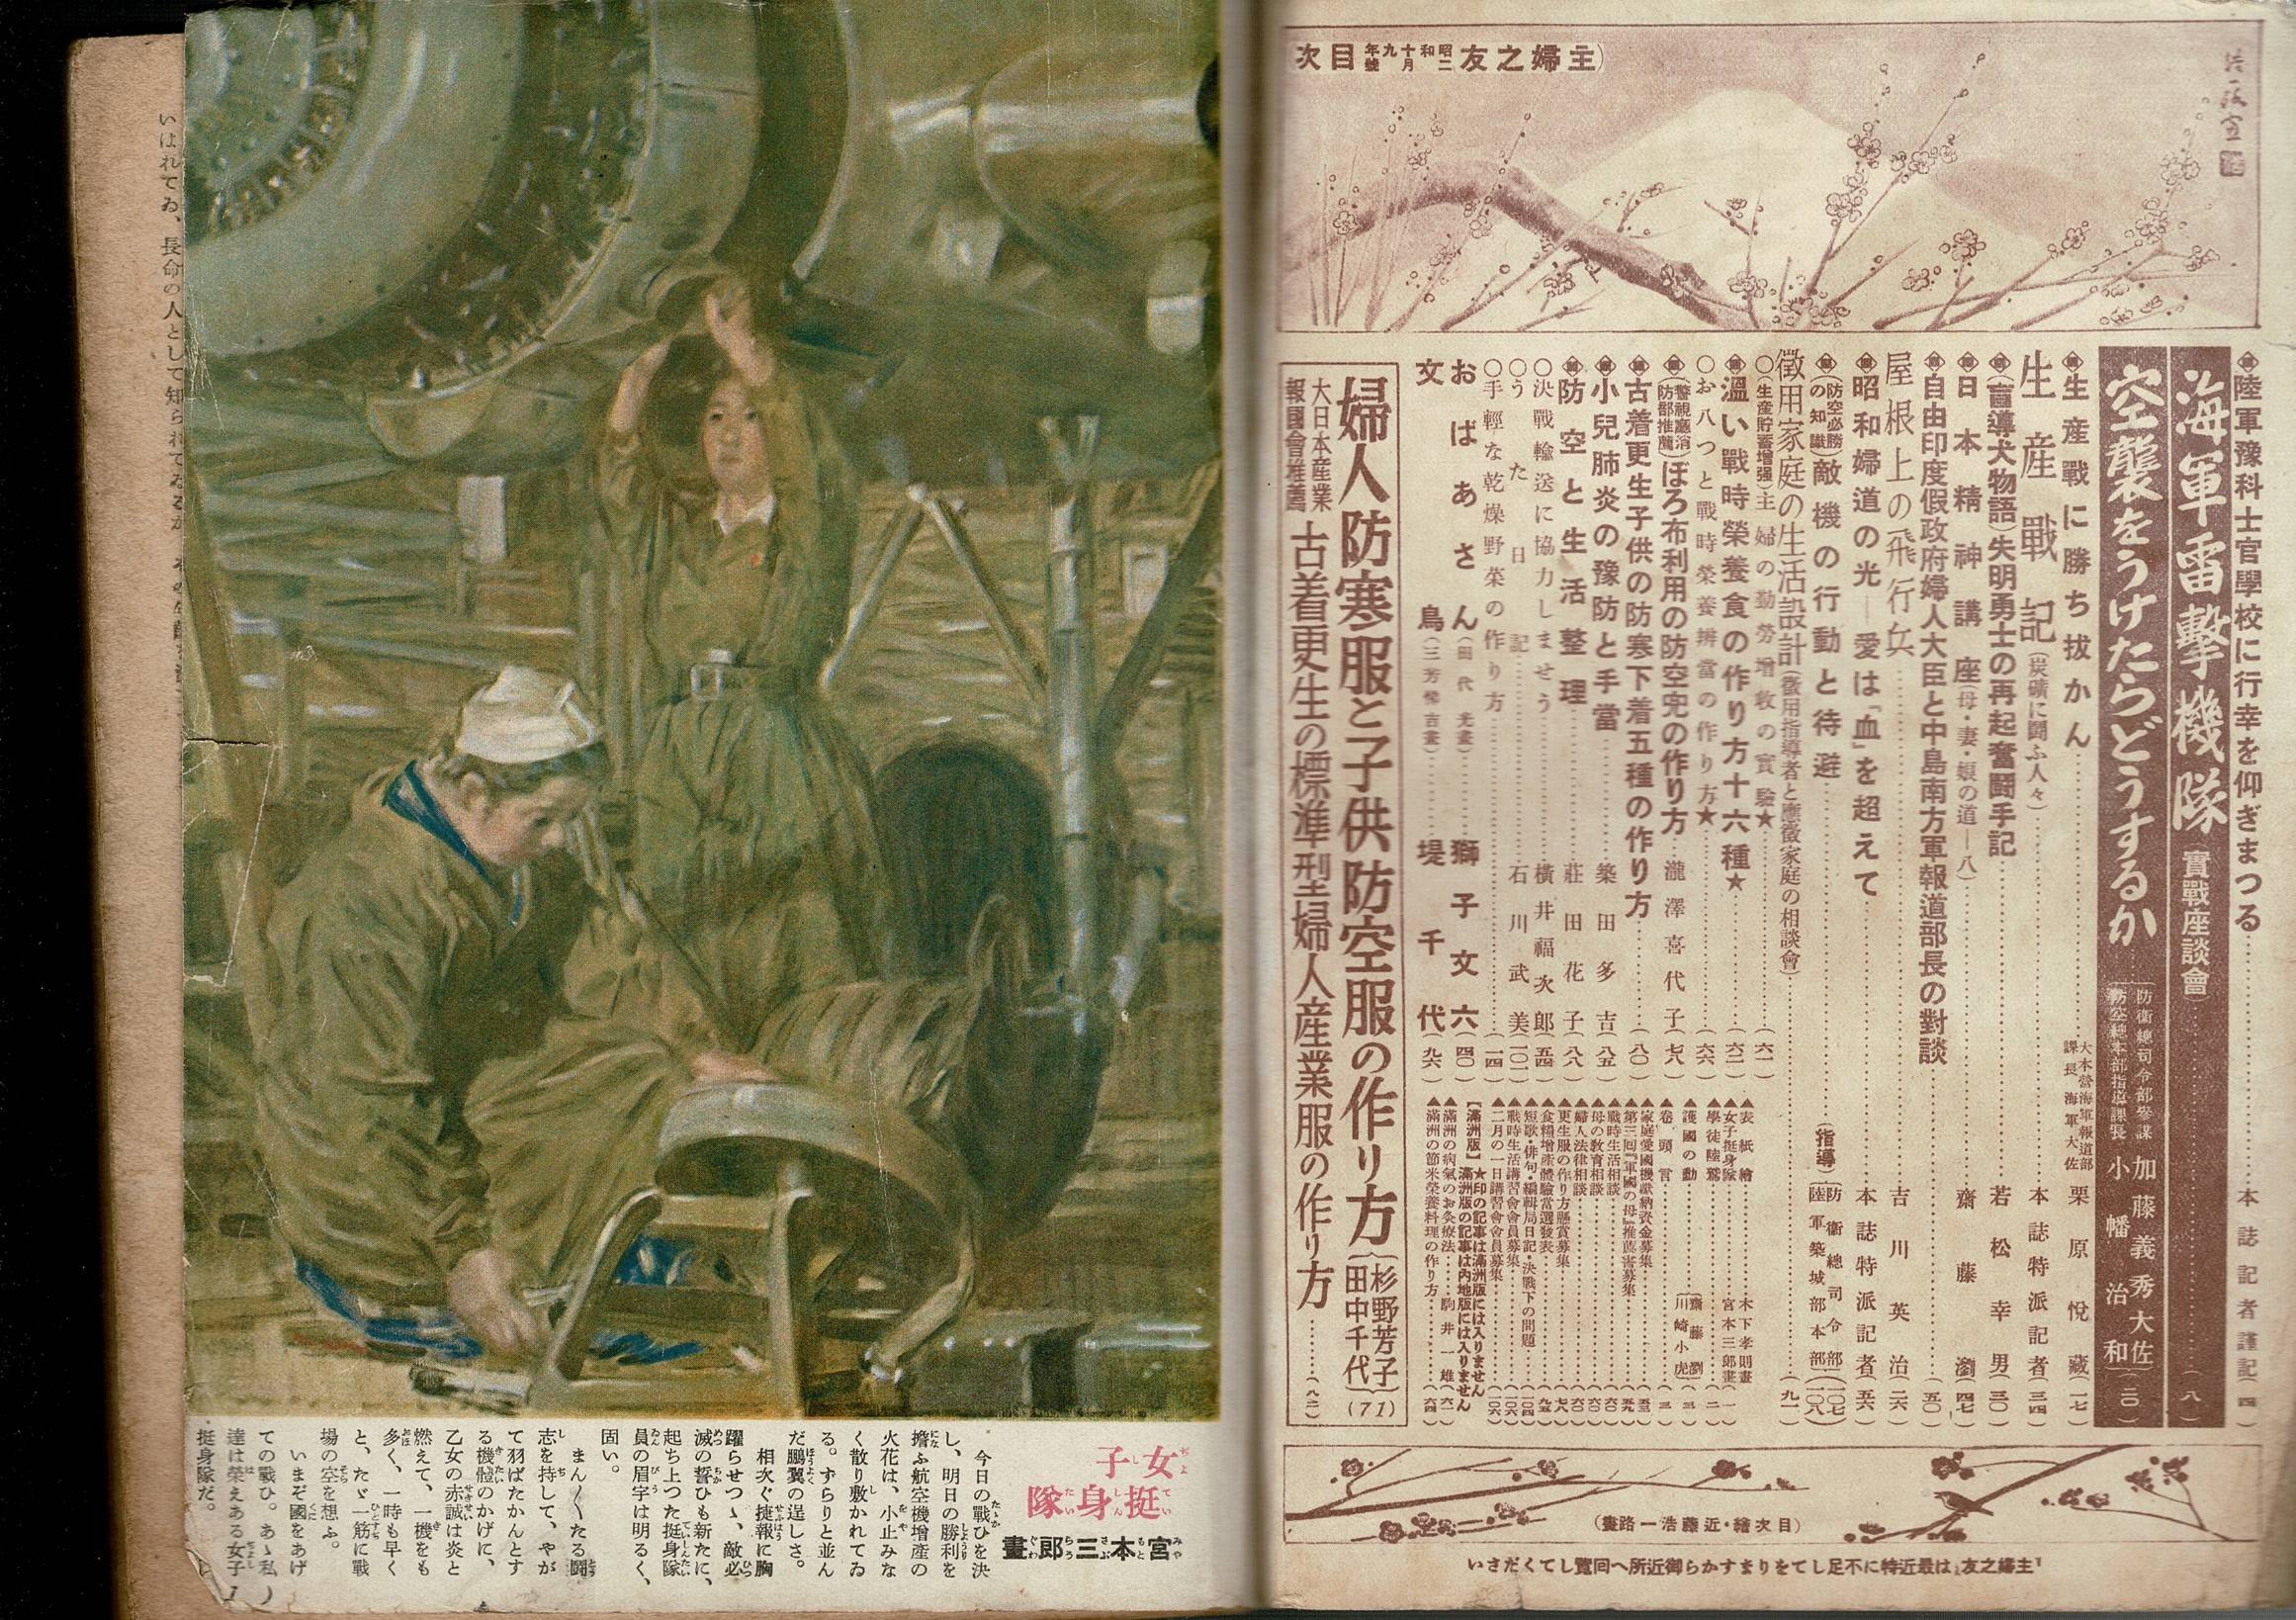 主婦之友 昭和十九年二月號 目次
陸軍豫科士官學校に行幸を仰ぎまつる 本誌記者謹記(四)
海軍雷擊機隊 實戰座談會(八)
空襲をうけたらどうするか 防衞總司令部參謀 加藤義秀大佐 防空總本部指導課長 小幡治和(二〇)
生産戰に勝ち拔かん 大本營海軍報道部課長海軍大佐 栗原悅藏(一七)
生産戰記(炭礦に鬪ふ人々) 本誌特派記者(三四)
(盲導犬物語)失明勇士の再起奮鬪手記 若松幸男(三〇)
日本精神講座(母・妻・娘の道―八) 齋藤瀏(四七)
自由印度假政府婦人大臣と中島南方軍報道部長の對談(五〇)
屋根上の飛行兵 吉川英治(二六)
昭和婦道の光―愛は「血」を超えて 本誌特派記者(五六)
(防空必勝の知識)敵機の行動と待避 (指導)(防衞總司令部 陸軍築城部本部)(一〇七 一〇八)
徵用家庭の生活設計(徵用指導者と應徵家庭の相談會)(九一)
(生産貯蓄增强)主婦の勤勞增收の實驗★(六一)
溫い戰時榮養食の作り方十六種★(六二)
お八つと戰時榮養辨當の作り方★(六六)
(警視廳消防部推薦)ぼろ布利用の防空兜の作り方 瀧澤喜代子(七八)
古着更生子供の防寒下着五種の作り方(八〇)
小兒肺炎の豫防と手當 築田多吉(八五)
防空と生活整理 莊田花子(八八)
決戰輸送に協力しませう 橫井福次郎(五四)
うた日記 石川武美(一〇二)
手輕な乾燥野菜の作り方(一四)
おばあさん(田代光畫) 獅子文六(四〇)
文鳥(三芳悌吉畫) 堤千代(九六)
▲表紙繪 木下孝則畫
▲女子挺身隊 宮本三郎畫(一)
▲學徒陸鷲(二)
▲護國の勳 (齋藤瀏 川崎小虎)(三)
▲卷頭言(三)
▲家庭愛國機獻納資金募集(五三)
▲第三回『軍國の母』推薦書募集(五九)
▲戰時生活相談(六〇)
▲母の敎育相談(六〇)
▲婦人法律相談(六〇)
▲更生服の作り方懸賞募集(七九)
▲食糧增產體驗當選發表(九五)
▲短歌・俳句・編輯局日記・決戰下の問題(一〇四)
▲戰時生活講習會會員募集(一〇六)
▲二月の一日講習會會員募集(一〇六)
【滿洲版】 ★印の記事は滿洲版には入りません 滿洲版の記事は內地版には入りません
▲滿洲の病氣のお灸療法 駒井一雄(六一)
▲滿洲の節米榮養料理の作り方(六四)
婦人防寒服と子供防空服の作り方(杉野芳子 田中千代)(71)
大日本産業報國會推薦 古着更生の標準型婦人産業服の作り方(八二)
(目次繪・近藤浩一路畫)
主婦之友は最近特に不足してをりますから御近所へ回覽してくださいさい
女子挺身隊
宮本三郎畫
今日の戰ひを決
し、明日の勝利を
擔ふ航空機增産の
火花は、小止みな
く散り敷かれてゐ
る。ずらりと並ん
だ鵬翼の逞しさ。
相次ぐ捷報に胸
躍らせつゝ、敵必
滅の誓ひも新たに、
起ち上つた挺身隊
員の眉宇は明るく、
固い。
まん〳〵たる鬪
志を持して、やが
て羽ばたかんとす
る機體のかげに、
乙女の赤誠は炎と
燃えて、一機をも
多く、一時も早く
と、たゞ一筋に戰
場の空を想ふ。
いまぞ國をあげ
ての戰ひ。あゝ私
達は榮えある女子
挺身隊だ。
(1)
いはれてゐ、長命の人として知られてゐるが